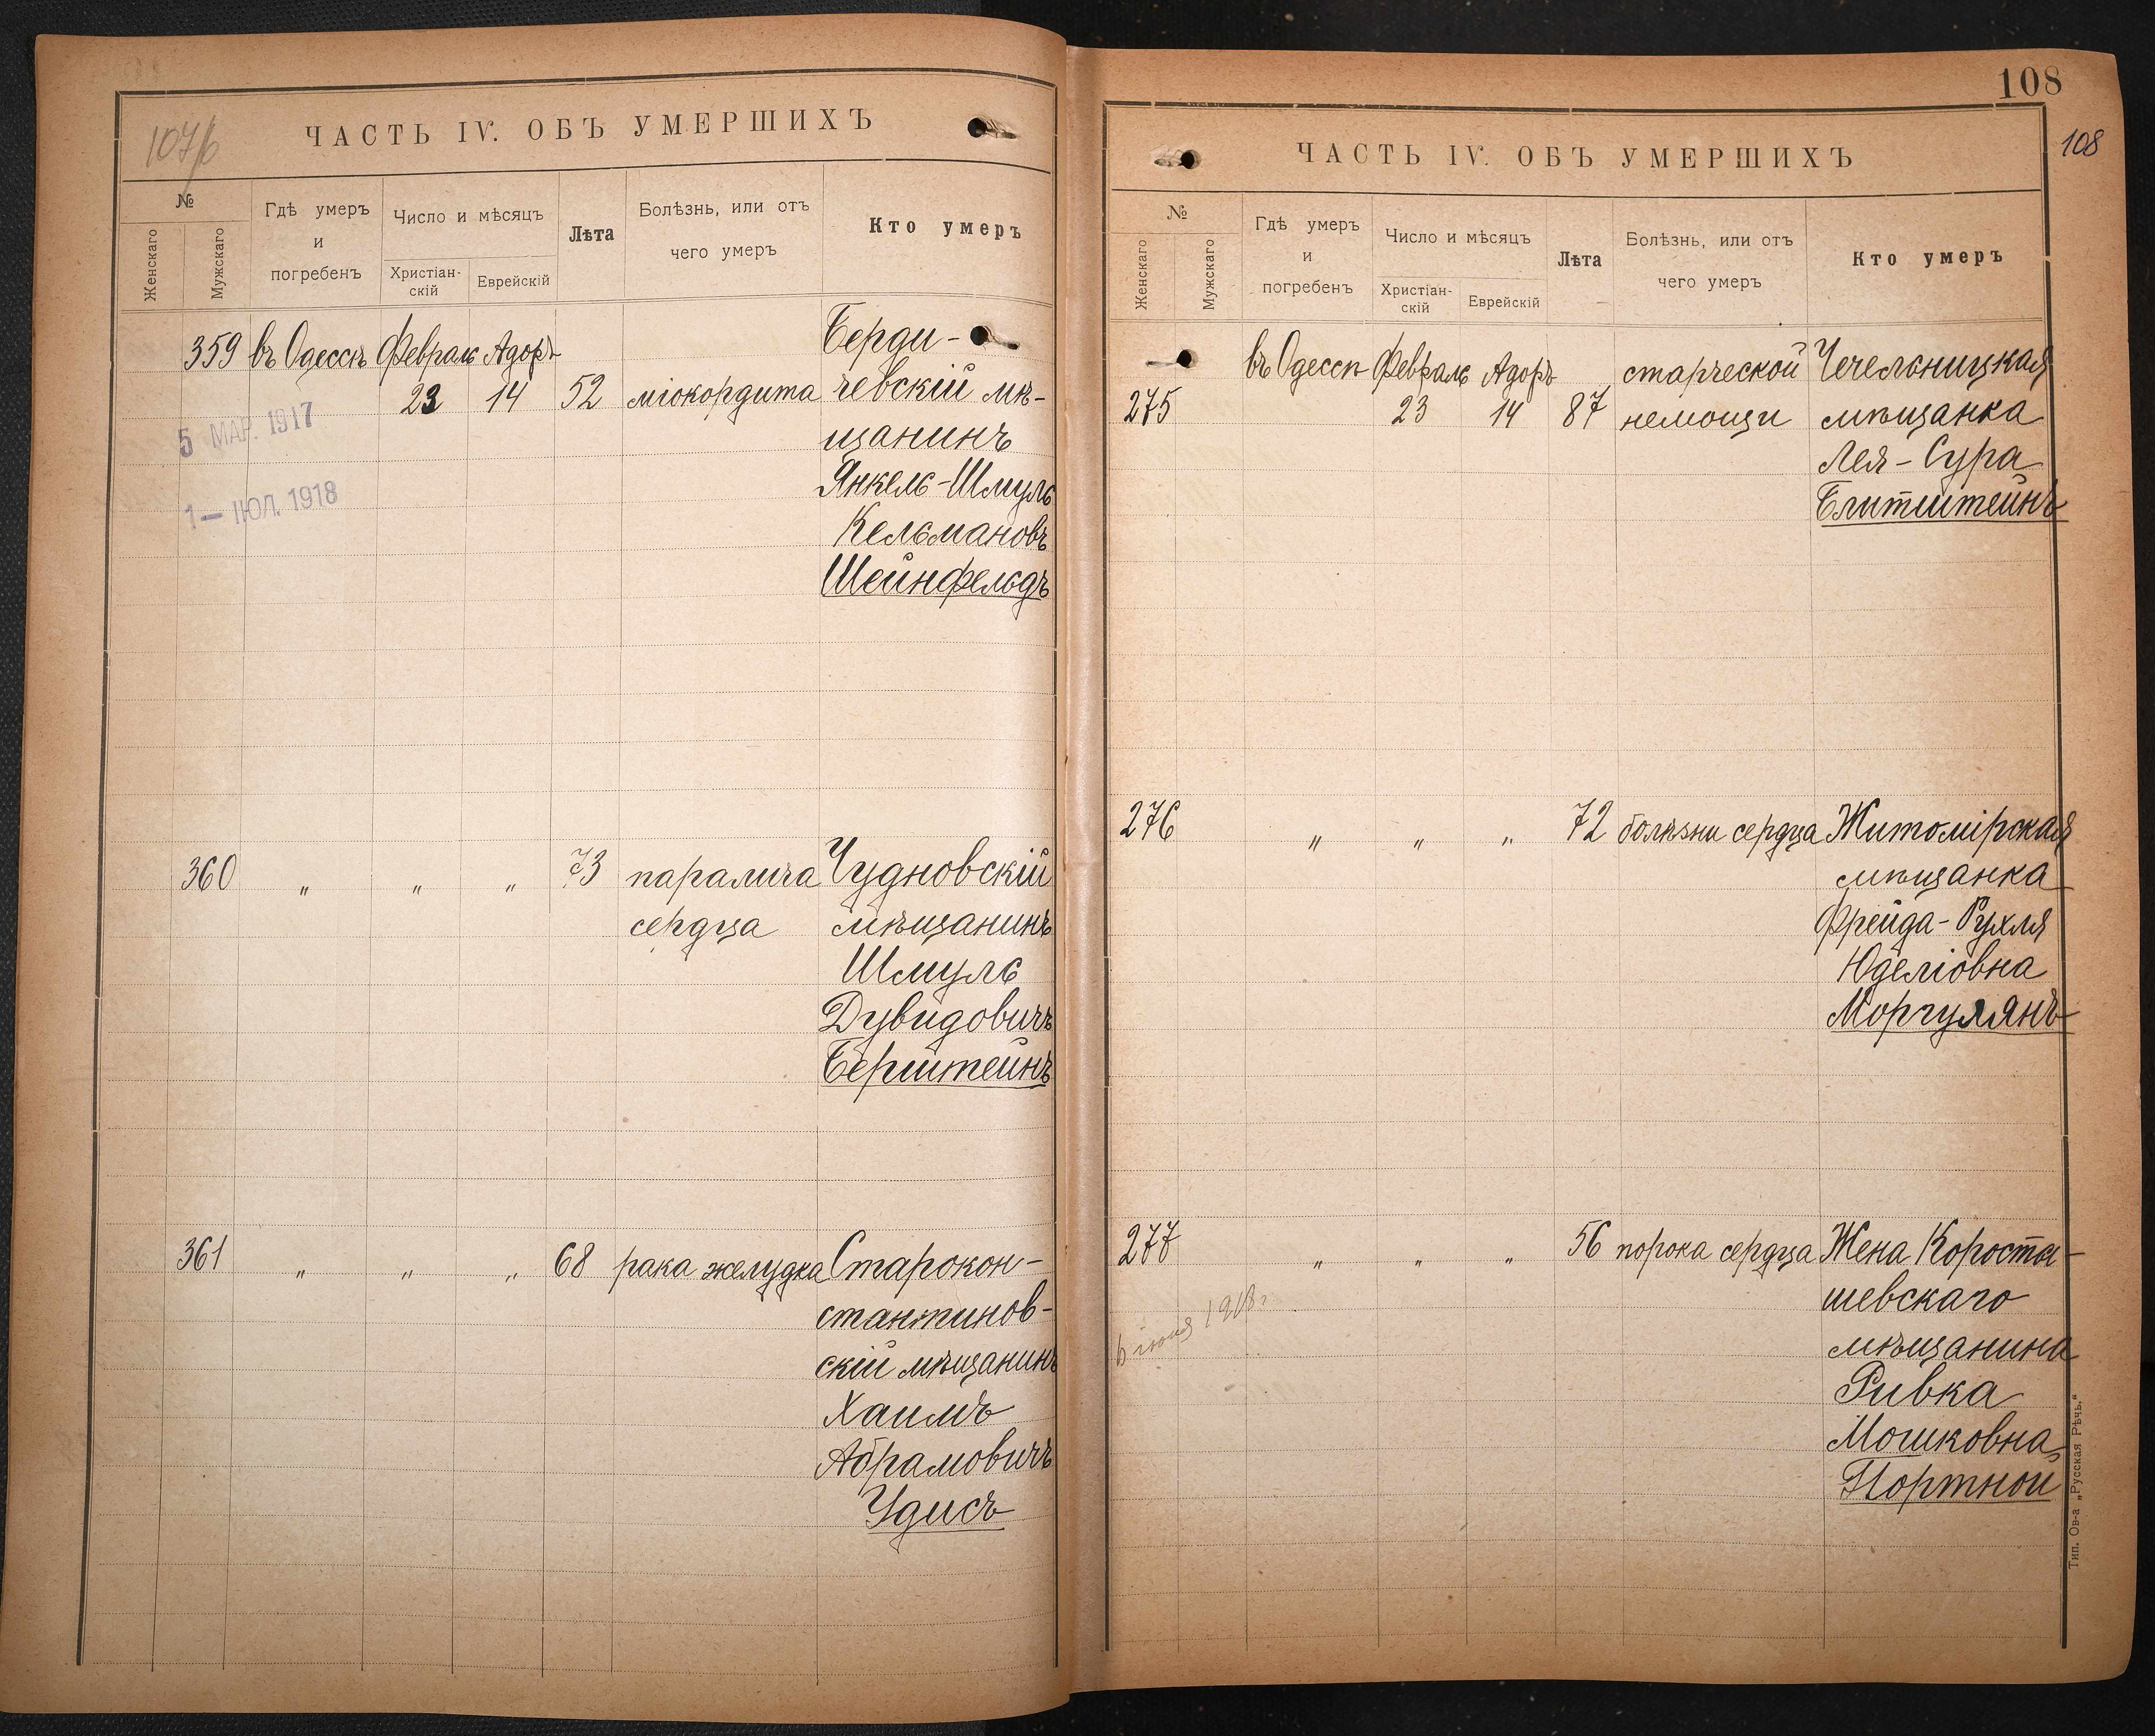 107/б
ЧАСТЬ IV. ОБЪ УМЕРШИХЪ
№
Женскаго
Мужскаго
Гдѣ умеръ
и
погребенъ
Число и мѣсяцъ
Христіан-
скій
Еврейскій
Лѣта
Болѣзнь, или отъ
чего умеръ
Кто умеръ
359 въ Одессѣ Февраль Адоръ Берди-
23 14 52 міокордита чевскій мѣ-
5 МАР. 1917
щанинъ
1 — ІЮЛ. 1918
Янкель-Шмуль
Кельмановъ
Шейнфельдъ
360 „ „ „ 73 паралича Чудновскій
сердца мѣщанинъ
Шмуль
Дувидовичъ
Берштейнъ
361 „ „ „ 68 рака желудка Старокон-
стантинов-
скій мѣщанинъ
Хаимъ
Абрамовичъ
Удисъ
108
108
ЧАСТЬ IV. ОБЪ УМЕРШИХЪ
№
Женскаго
Мужскаго
Гдѣ умеръ
и
погребенъ
Число и мѣсяцъ
Христіан-
скій
Еврейскій
Лѣта
Болѣзнь, или отъ
чего умеръ
Кто умеръ
въ Одессѣ Февраль Адоръ старческой Чечельницкая
275 23 14 87 немощи мѣщанка
Лея-Сура
Блитштейнъ
276 „ „ „ 72 болѣзни сердца Житомірская
мѣщанка
Фрейда-Рухля
Юделіовна
Моргулянъ
277 „ „ „ 56 порока сердца Жена Коросты-
шевскаго
6 июня 1918г
мѣщанина
Ривка
Мошковна
Портной
Тип. Ов-а „Русская Рѣчь.“